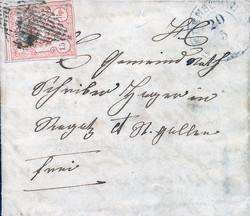 Gemeindrath
Schreiber Hager in
Ragatz Ct St. gallen
frei
20
15